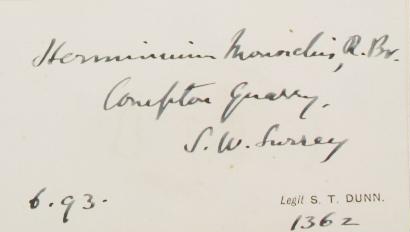 Herminium Monorchis, R. Br.
Compton Quarry.
S. W. Surrey
6.93.
Legit S. T. DUNN.
1362